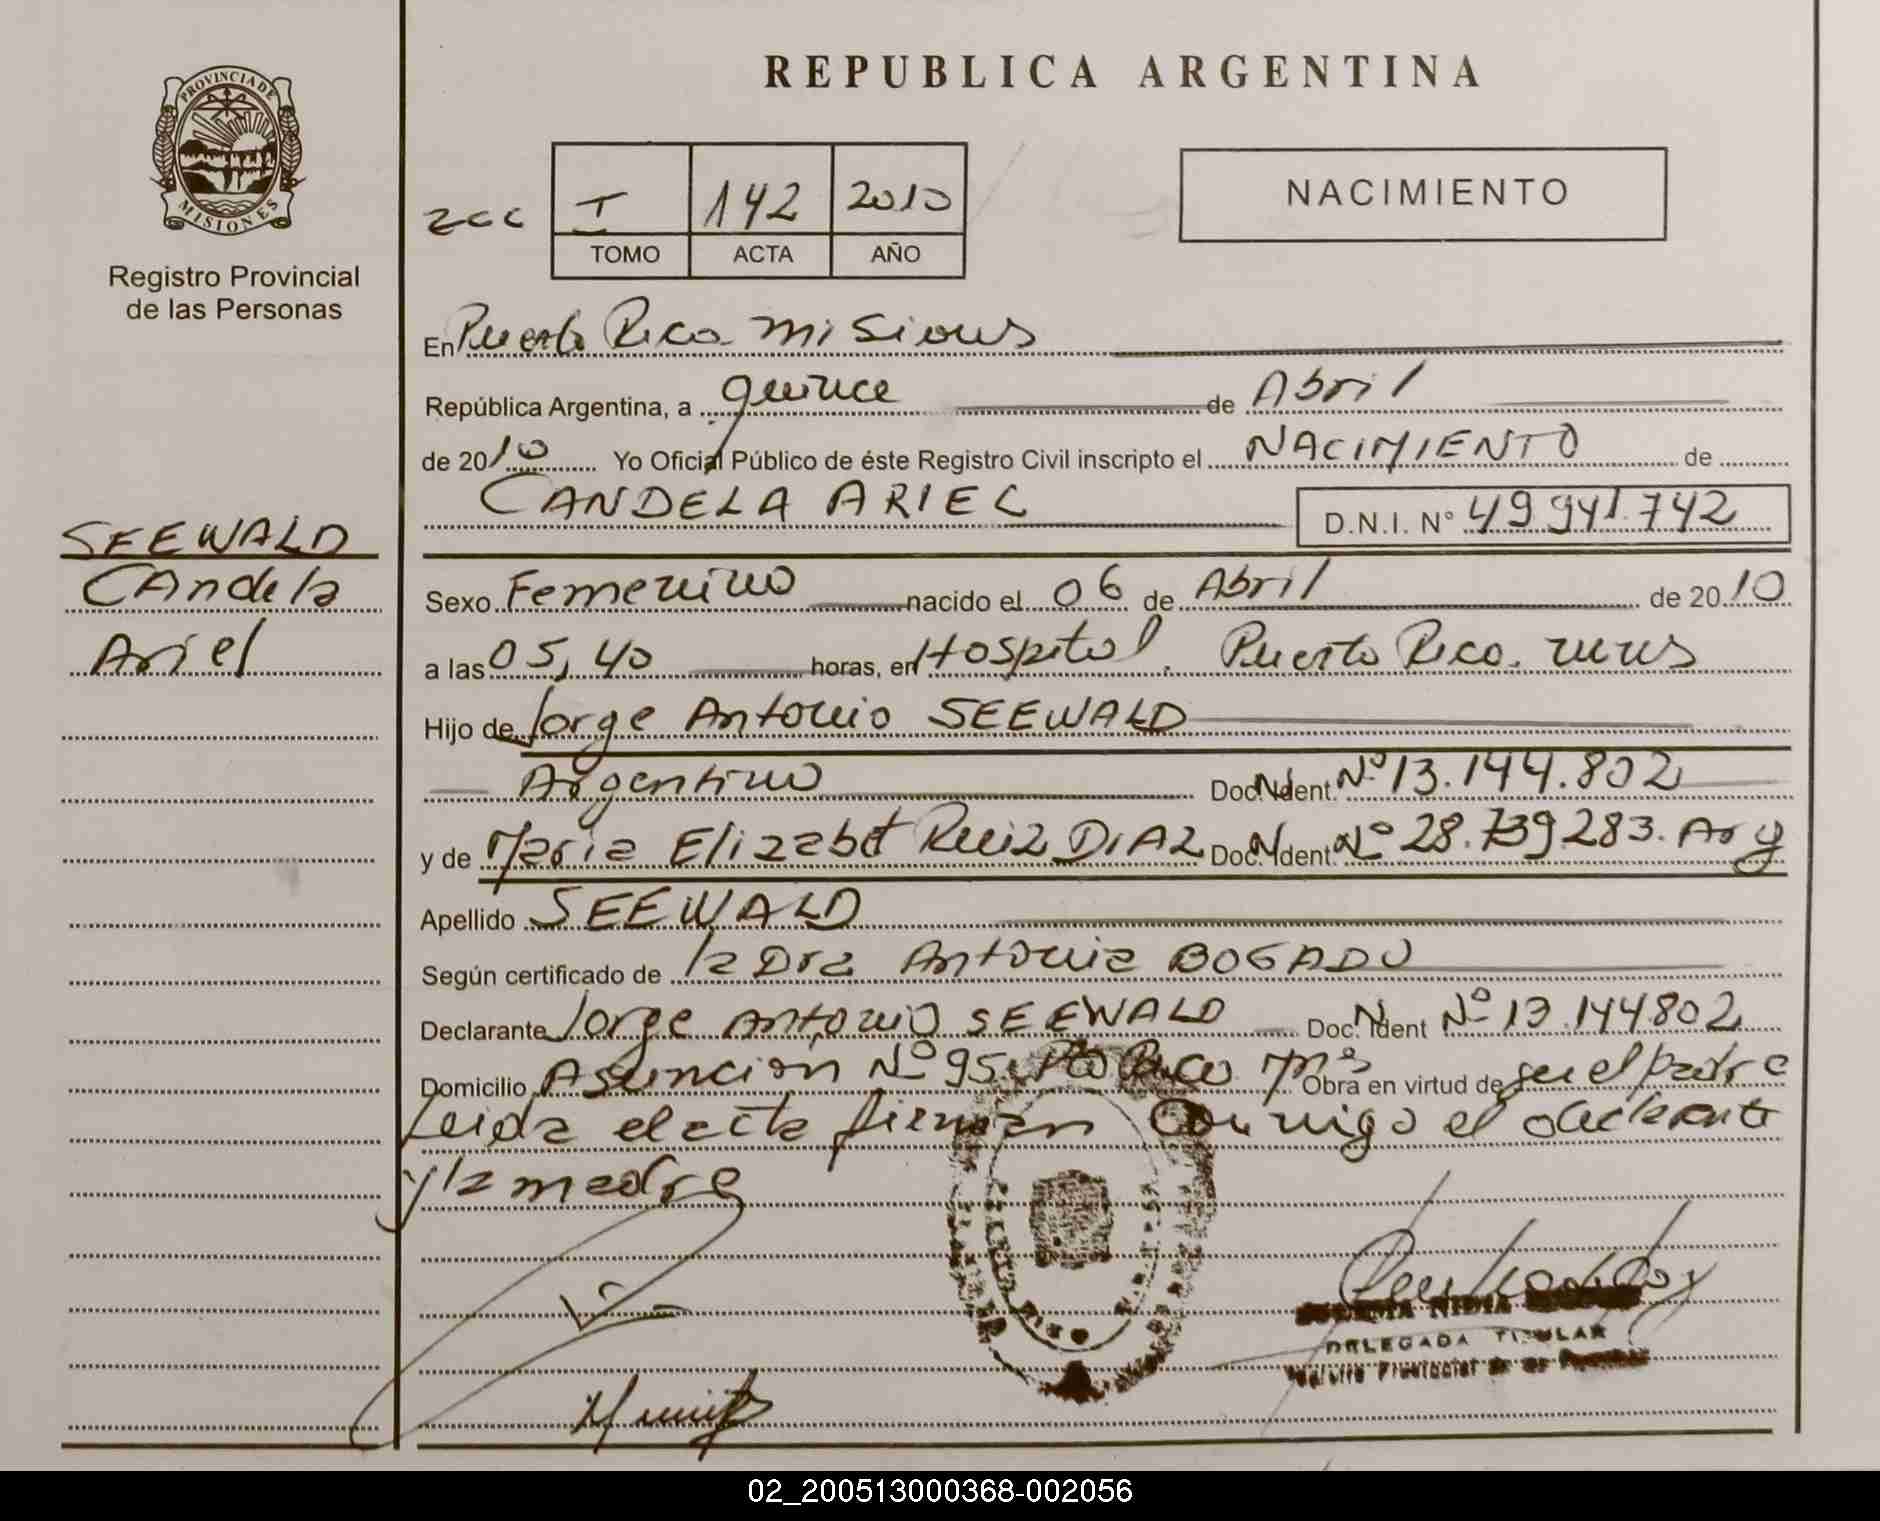 REPUBLICA ARGENTINA
PROVINCIA DE
MISIONES
Registro Provincial
de las Personas
I 142 2010
TOMO ACTA AÑO
NACIMIENTO
En Puerto Rico Misiones
República Argentina, a quince de Abril
de 2010 Yo Oficial Público de éste Registro Civil inscripto el NACIMIENTO de
CANDELA ARIEL D.N.I. N° 49 941.742
SEEWALD
Candela
Ariel
Sexo Femenino nacido el 06 de Abril de 2010
a las 05,40 horas, en Hospital. Puerto Rico.
Hijo de Jorge Antonio SEEWALD
Argentino Doc. Ident. Nº 13.144.802
y de Maria Elizabet Ruiz DIAZ Doc. Ident. Nº 28.739.283. Arg
Apellido SEEWALD
Según certificado de la Dra Antonia BOGADO
Declarante Jorge Antonio SEEWALD Doc. Ident Nº 13.144802
Domicilio Asuncion Nº 95 Pto Rico Obra en virtud de ser el padre
Leida el acta firman conmigo el declarante
y la madre
DELEGADA TITULAR
02_200513000368-002056